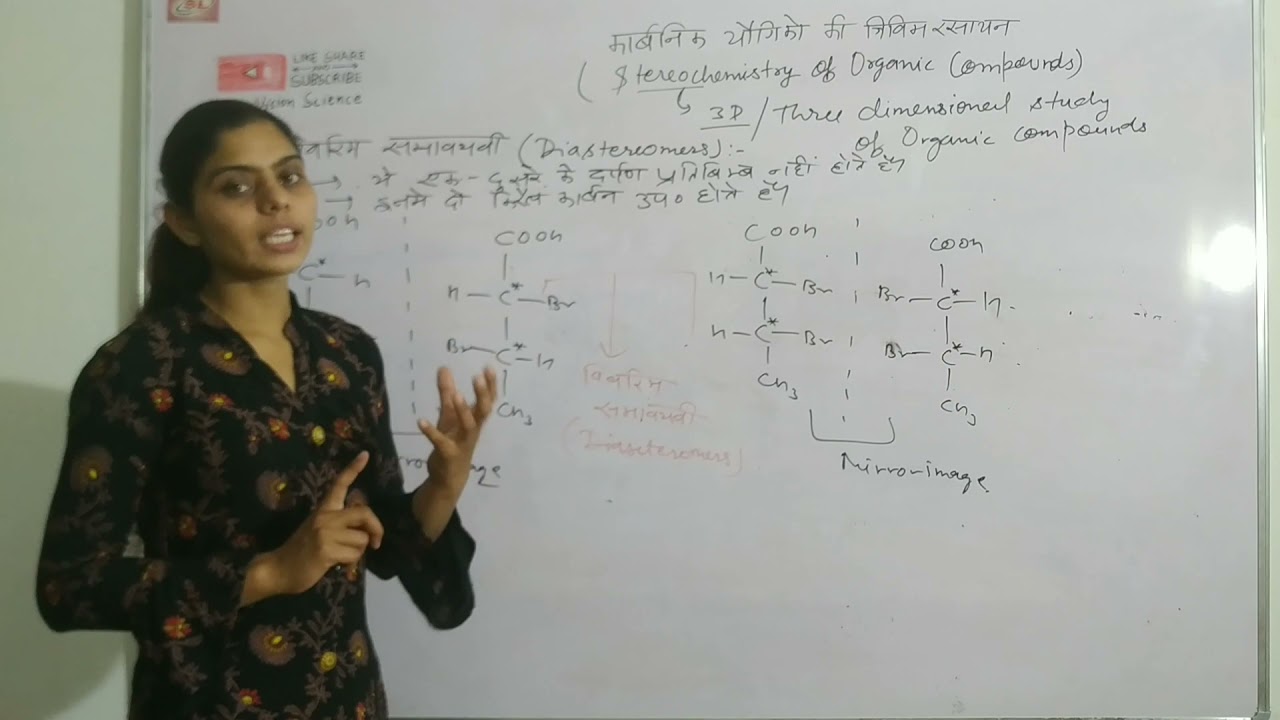 SL
LIKE SHARE
AND
SUBSCRIBE
Vision Science
कार्बनिक यौगिको की त्रिविम रसायन
(Stereochemistry of Organic Compounds)
↳ 3D / Three dimensional study
of Organic compounds
विवरिम समावयवी (Diastereomers):-
→ ये एक-दूसरे के दर्पण प्रतिबिम्ब नहीं होते हैं।
→ इनमें दो किरैल कार्बन उप० होते हैं।
COOH
C*—H
COOH
H—C*—Br
Br—C*—H
CH3
COOH
H—C*—Br
H—C*—Br
CH3
COOH
Br—C*—H
Br—C*—H
CH3
विवरिम
समावयवी
(Diasteromers)
Mirror image